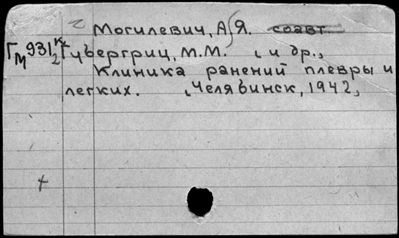 Могилевич, А.Я. соавт.
Гм 931/2 к Губергриц, М.М. , и др.,
Клиника ранений плевры и
легких. , Челябинск, 1942,